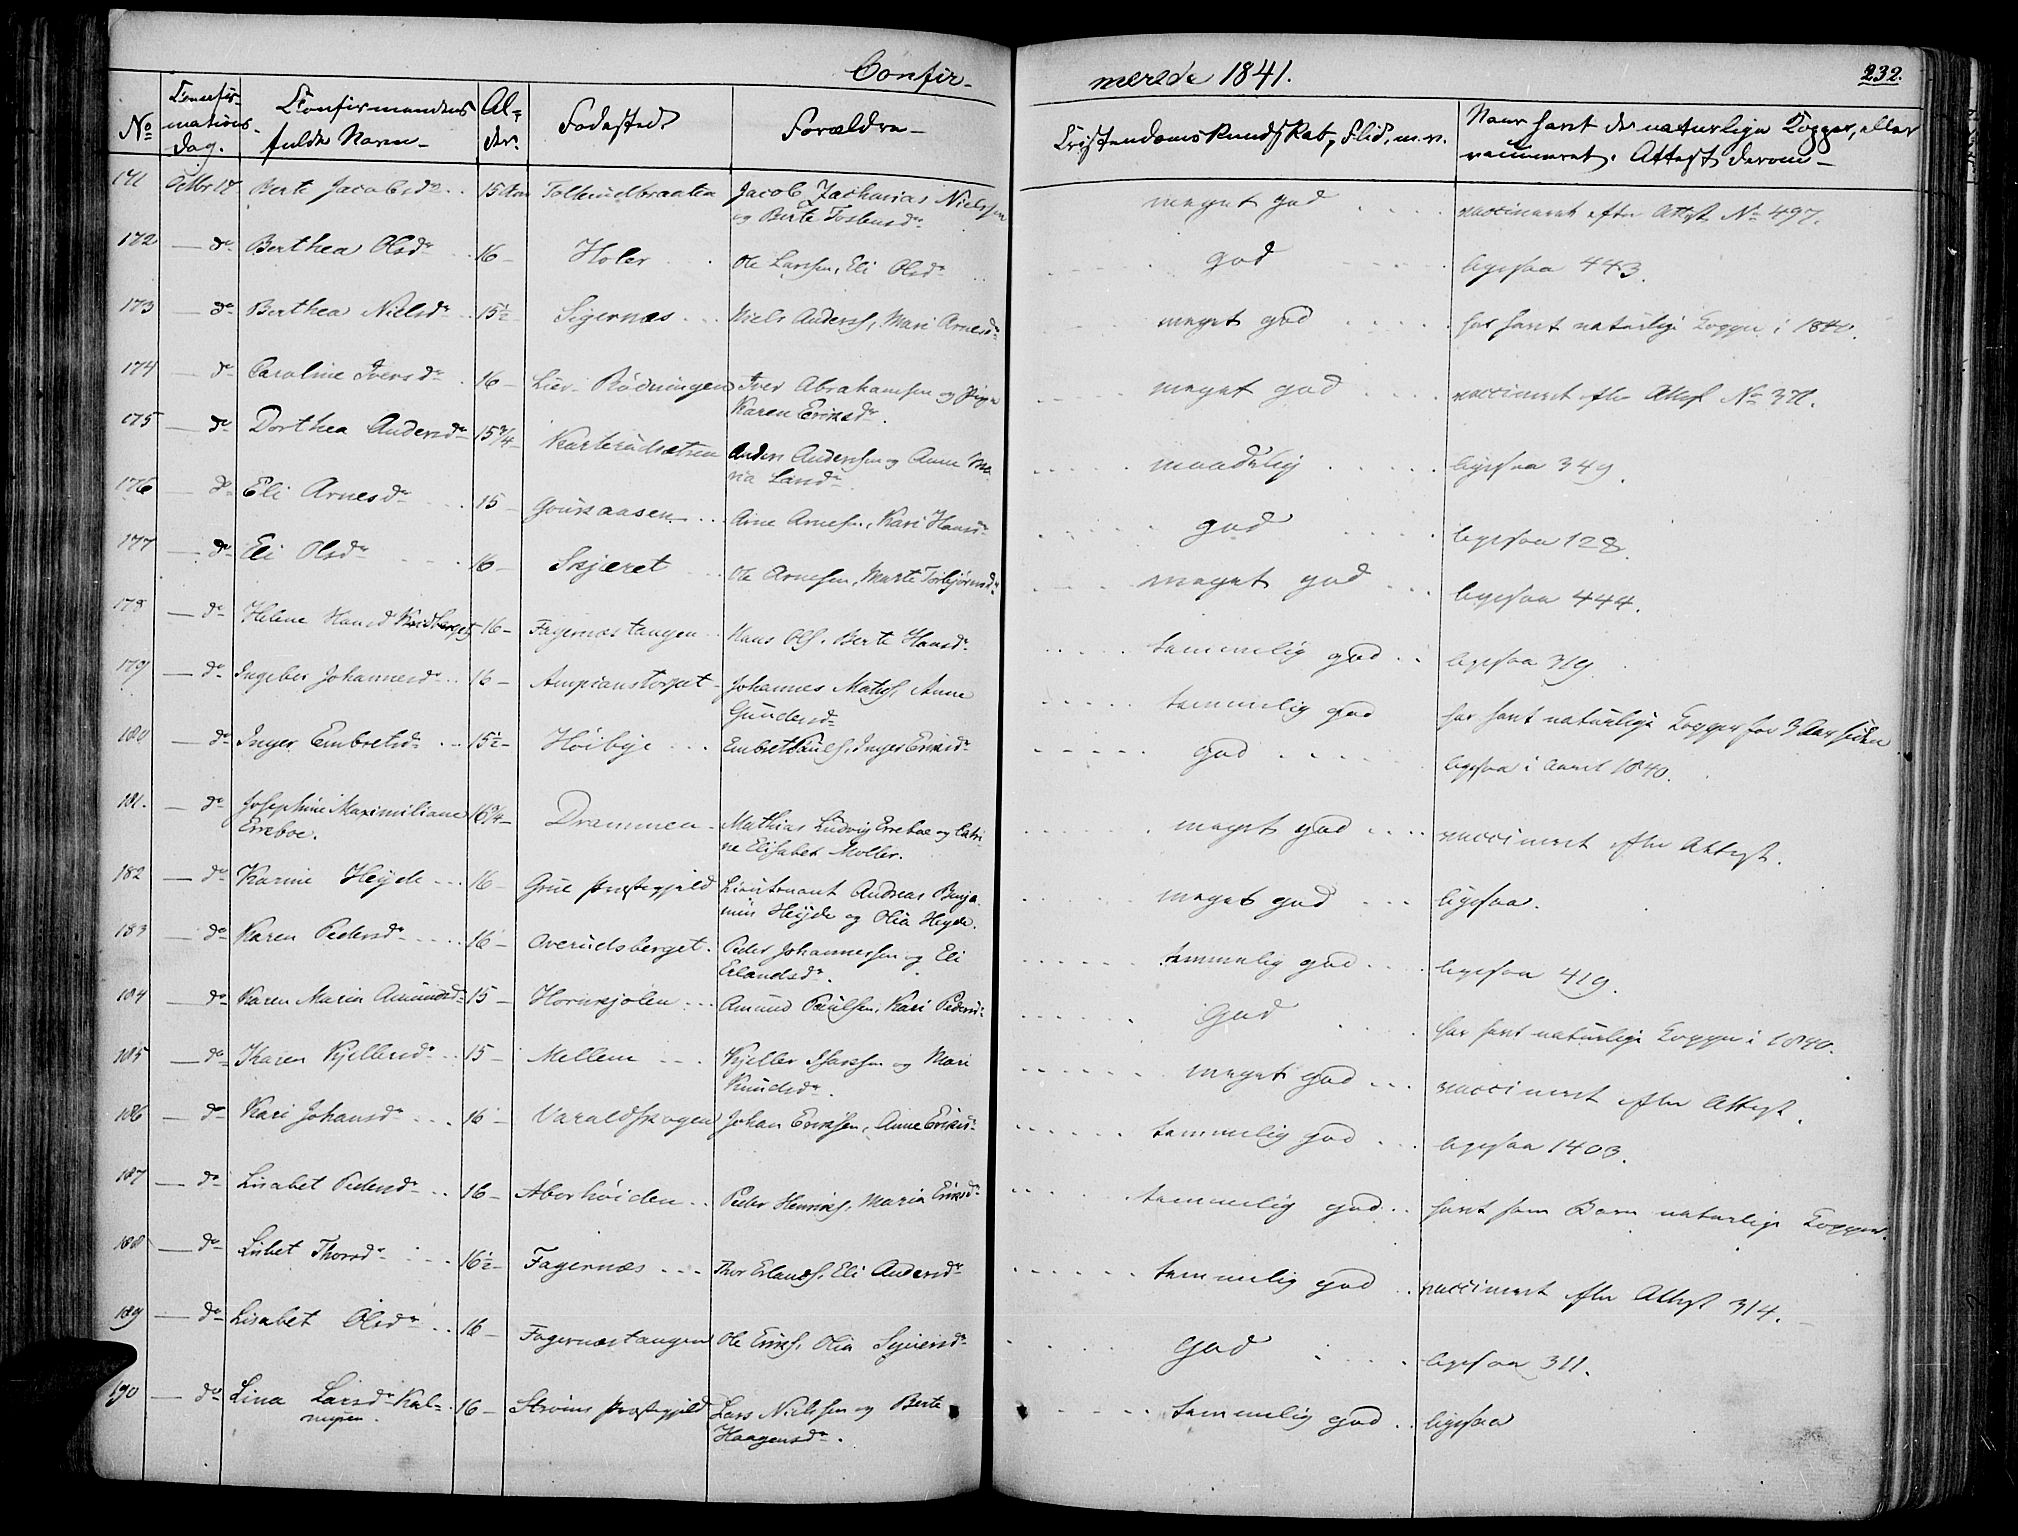 Confir-
merede 1841.
232.
No
Confir-
mations-
dag.
Confirmandens
fulde Navn
Al-
der.
Fødested
Forældre
Cristendomskundskab, Flid, m.v.
Naar havt de naturlige Kopper, eller
vaccineret. Attest derom
171 Octbr 17 Berte Jacobsdr 15 Aar Tollerudbraaten Jacob Zacharias Nielssen
og Berte Torbensdr
meget god vaccineret efter Attest No 497.
172 — do Berthea Olsdr 16 — Holer Ole Larssen, Eli Olsdr god ligesaa 443.
173 — do Berthea Nielsdr 15½ Sigernæs Niels Anderss, Mari Arnesdr meget god har havt naturlige Kopper i 1840.
174 — do Caroline Iversdr 16 — Lier-Rödningen Iver Abrahamsen og Pige
Karen Eriksdr.
meget god vaccineret efter Attest No 371.
175 — do Dorthea Andersdr 15¾ — Karterudsætren Anders Andersen og Anne Ma
ria Landr
maadelig ligesaa 349.
176 — do Eli Arnesdr 15 — Gouksaasen Arne Arnesen, Kari Hansdr god ligesaa 128.
177 — do Eli Olsdr 16 — Skjæret Ole Arnesen, Marte Torbjörnsdr meget god ligesaa 444.
178 — do Helene Hansd 16 — Fagernæstangen Hans Ols, Berte Hansdr temmelig god ligesaa 319.
179 — do Ingebor Johannesdr 16 — Ampianstorpet Johannes Maths, Anne
Gundersdr
temmelig god har havt naturlige Kopper for 3 Aar siden
180 — do Inger Embretsdr 15½ — Höibye Embret Pauls, Inger Eriksdr god ligesaa i Aaret 1840.
181. — do Josephine Maximiliane
Erreboe.
16¾ — Drammen Mathias Ludvig Erreboe og Catri
ne Elisabet Moller.
meget god vaccineret efter Attest.
182 — do Karine Heyde 16 — Grue præstegjeld Lieutenant Andreas Benja
min Heyde og Olia Heyde.
meget god ligesaa.
183 — do Karen Pedersdr 16 — Overudsberget Peder Johannessen og Eli
Erlandsdr.
temmelig god ligesaa 419.
184 — do Karen Maria Amundsdr 15 — Hornkjölen Amund Paulsen, Kari Pedersdr God har havt naturlige Kopper i 1840.
185 — do Karen Kjellersdr 15 — Mellem Kjeller Iffarssen og Mari
Knudsdr.
meget god vaccineret efter Attest.
186 — do Kari Johansdr 16 — Varaldskogen Johan Eriksen, Anne Eriksdr temmelig god ligesaa 1403.
187 — do Lisabet Pedersdr 16 — Aborhöiden Peder Henriks, Maria Eriksdr temmelig god havt som Barn naturlige Kopper.
188 — do Lisbet Thorsdr 16½ — Fagernæs Thor Erlands, Eli Andersdr temmelig god vaccineret efter Attest 314.
189 — do Lisabet Olsdr 16 — Fagernæstangen Ole Eriks, Olia Syversdr God ligesaa 311.
190 — do Lina Larsdr Kal-
moen.
16 — Ströms præstegjeld Lars Nielssen og Berte
Haagensdr.
temmelig god ligesaa